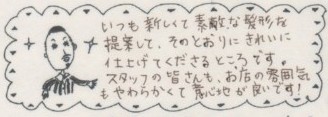 いつも新しくて素敵な髪形を
提案して、そのとおりにきれいに
仕上げてくださるところです。
スタッフの皆さんも、お店の雰囲気
もやわらかくて居心地が良いです!